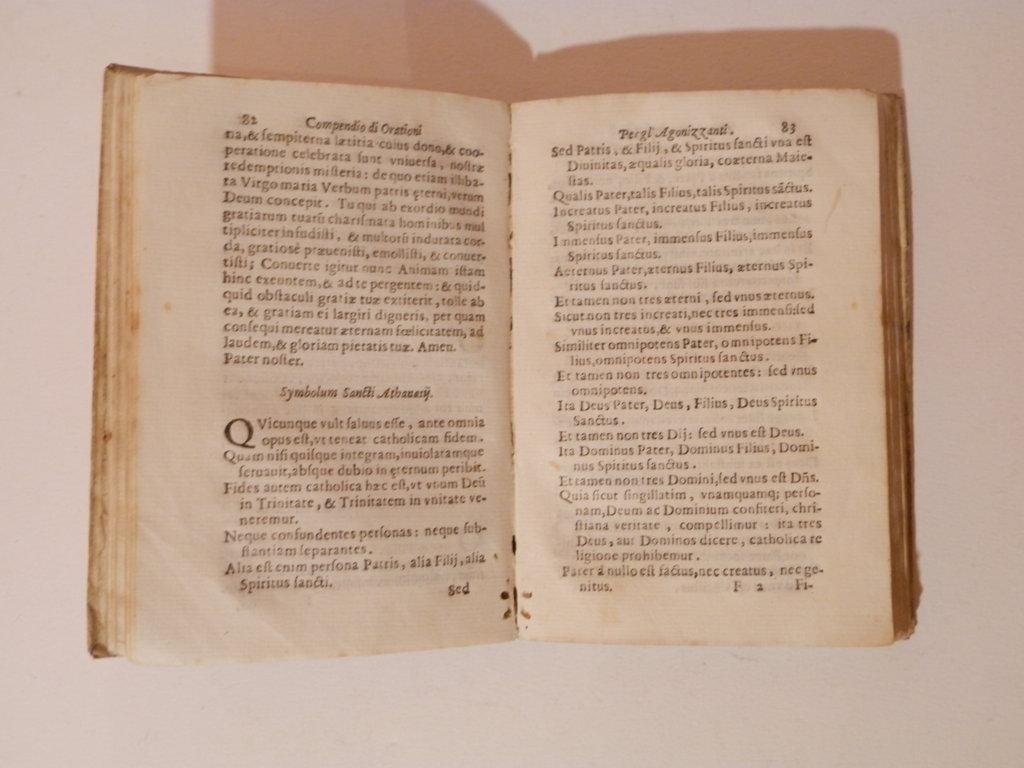 82
Compendio di Orationi
na,& sempiterna lætitia cuius dono,& coo-
peratione celebrata sunt vniuersa, nostræ
redemptionis misteria: de quo etiam illiba-
ta Virgo maria Verbum patris ęterni,verum
Deum concepit. Tu qui ab exordio mundi
gratiarum tuarū charismata hominibus mul
tipliciter infudisti, & multorū indurata cor-
da, gratiosè præuenisti, emollisti, & conuer-
tisti; Conuerte igitur nunc Animam istam
hinc exeuntem,& ad te pergentem: & quid-
quid obstaculi gratiæ tuæ extiterit, tolle ab
ea, & gratiam ei largiri digneris, per quam
consequi mereatur æternam fœlicitatem, ad
laudem,& gloriam pietatis tuæ. Amen.
Pater noster.
Symbolum Sancti Athanasij.
QVicunque vult saluus esse, ante omnia
opus est,vt teneat catholicam fidem.
Quam nisi quisque integram,inuiolatamque
seruauit,absque dubio in ęternum peribit.
Fides autem catholica hæc est,vt vnum Deū
in Trinitate, & Trinitatem in vnitate ve-
neremur.
Neque confundentes personas: neque sub-
stantiam separantes.
Alia est enim persona Patris, alia Filij,alia
Spiritus sancti.
Sed
Per gl'Agonizzanti.
83
Sed Patris, & Filij, & Spiritus sancti vna est
Diuinitas, æqualis gloria, coæterna Maie-
stas.
Qualis Pater,talis Filius,talis Spiritus sāctus.
Increatus Pater, increatus Filius, increatus
Spiritus sanctus.
Immensus Pater, immensus Filius,immensus
Spiritus sanctus.
Aeternus Pater,æternus Filius, æternus Spi-
ritus sanctus.
Et tamen non tres æterni, sed vnus æternus.
Sicut non tres increati,nec tres immensi:sed
vnus increatus,& vnus immensus.
Similiter omnipotens Pater, omnipotens Fi-
lius,omnipotens Spiritus sanctus.
Et tamen non tres omnipotentes: sed vnus
omnipotens.
Ita Deus Pater, Deus, Filius, Deus Spiritus
Sanctus.
Et tamen non tres Dij: sed vnus est Deus.
Ita Dominus Pater, Dominus Filius, Domi-
nus Spiritus sanctus.
Et tamen non tres Domini,sed vnus est Dñs.
Quia sicut singillatim, vnamquamq; perso-
nam,Deum ac Dominium confiteri, chri-
stiana veritate, compellimur: ita tres
Deus, aut Dominos dicere, catholica re
ligione prohibemur.
Pater à nullo est factus,nec creatus, nec ge-
nitus.
F 2
Fi-